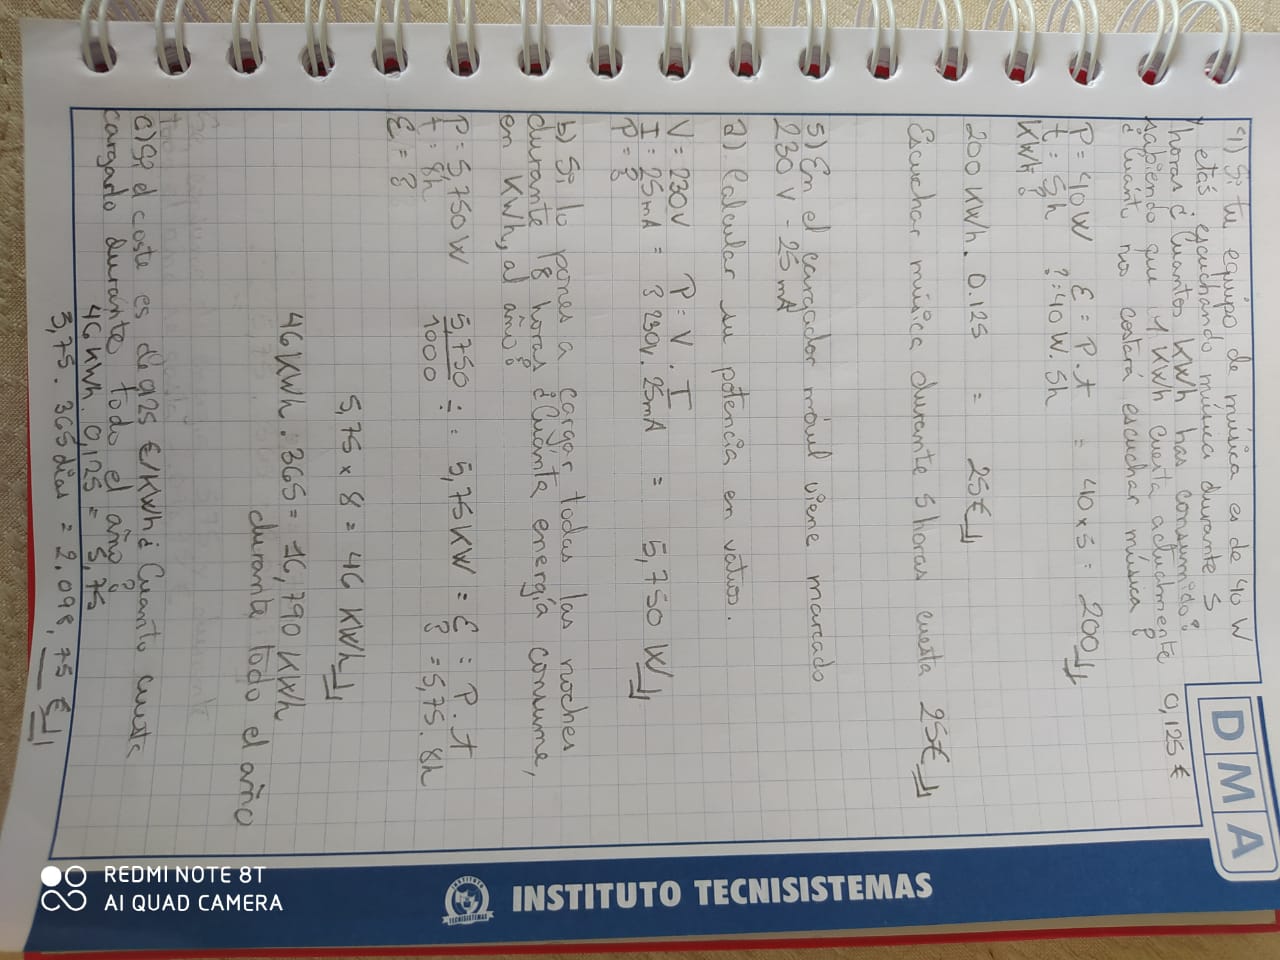 4) Si tu equipo de música es de 40 W
y estás escuchando música durante 5
horas ¿Cuantos KWh has consumido?
sabiendo que 1 KWh cuesta actualmente 0,125 €
¿Cuánto nos costará escuchar música?
P = 40 W E = P.t = 40 x 5 = 200
t = 5h ?: 40 W. 5h
KWh?
200 KWh. 0.125 = 25€
Escuchar música durante 5 horas cuesta 25€
5) En el cargador móvil viene marcado
230 V - 25 mA
a) Calcular su potencia en vatios.
V = 230V P = V . I
I = 25mA = ? 230V. 25mA = 5,750 W
P = ?
b) Si lo pones a cargar todas las noches
durante 8 horas ¿Cuánta energía consume,
en KWh, al año?
P = 5,750 W 5,750 = 5,75 KW = E = P.t
t = 8h 1000 ? = 5,75. 8h
E = ?
5,75 x 8 = 46 KWh
46 KWh. 365 = 16,790 KWh
durante todo el año
c) Si el coste es de 0,125 €/KWh ¿Cuanto cuesta
cargarlo durante todo el año?
46 KWh. 0,125 = 5,75
5,75. 365 días = 2,098,75 €
DMA
INSTITUTO TECNISISTEMAS
INSTITUTO
TECNISISTEMAS
REDMI NOTE 8T
AI QUAD CAMERA